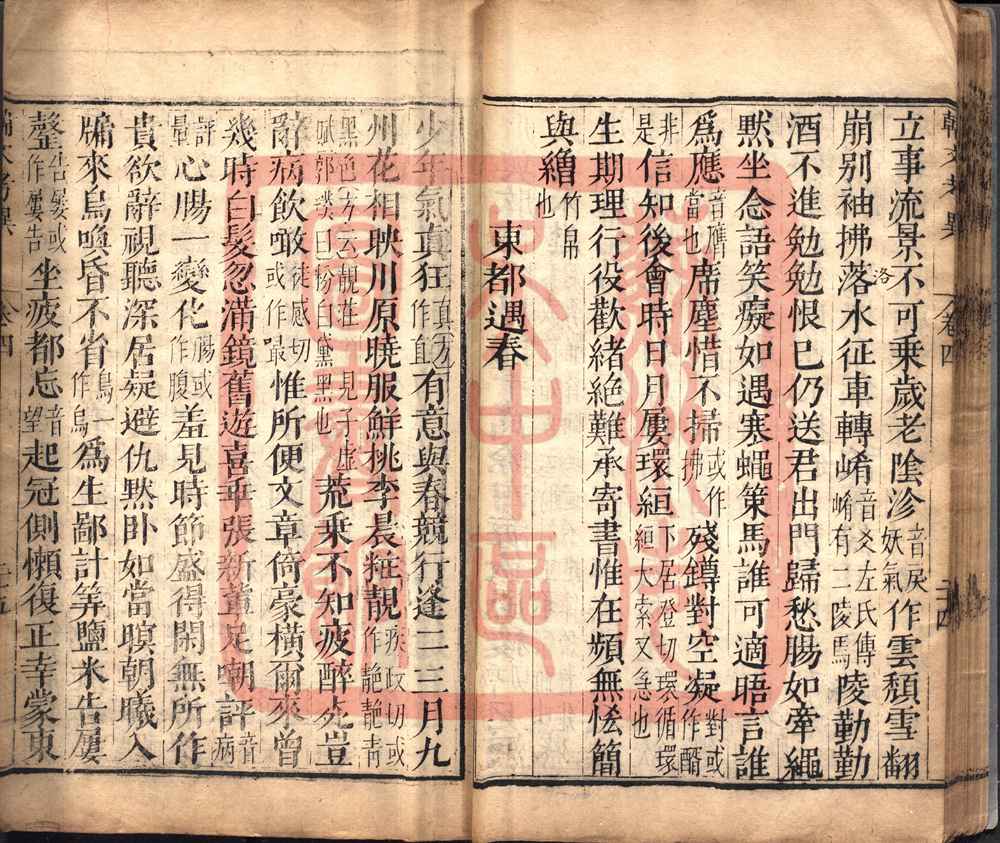 立事流景不可乗歲老陰沴音戻妖氣作雲頹雪翻
崩别袖拂落洛水征車轉崤音爻左氏傳崤有二陵馬陵勤勤
酒不進勉勉恨巳仍送君出門歸愁腸如牽繩
黙坐念語笑癡如遇寒蠅策馬誰可適晤言誰
爲應音膺當也席塵惜不掃或作拂殘鐏對空凝對或作酧
非是信知後會時日月屢環絙下居登切環循環絙大索又急也
生期理行役歡緒絶難承寄書惟在頻無恡簡
與繒竹帛也
東都遇春
少年氣真狂真方作直有意與春競行逢二三月九
州花相映川原曉服鮮桃李晨粧靚疾政切或作靜靜青
黑色方云靚莊見子虛賦郭璞曰粉白黛黑也荒乗不知疲醉死豈
辭病飲噉徒感切或作最惟所便文章倚豪橫爾來曾
幾時白髮忽滿鏡舊遊喜乖張新輩足嘲評音病
評量心腸一變化腸或作腹羞見時節盛得閑無所作
貴欲辭視聽深居疑避仇黙卧如當暝朝曦入
牖來鳥喚昏不省鳥一作烏爲生鄙計筭鹽米告屢
罄告屢或作屢告坐疲都忘音望起冠側懶復正幸蒙東
韓文考異
卷四